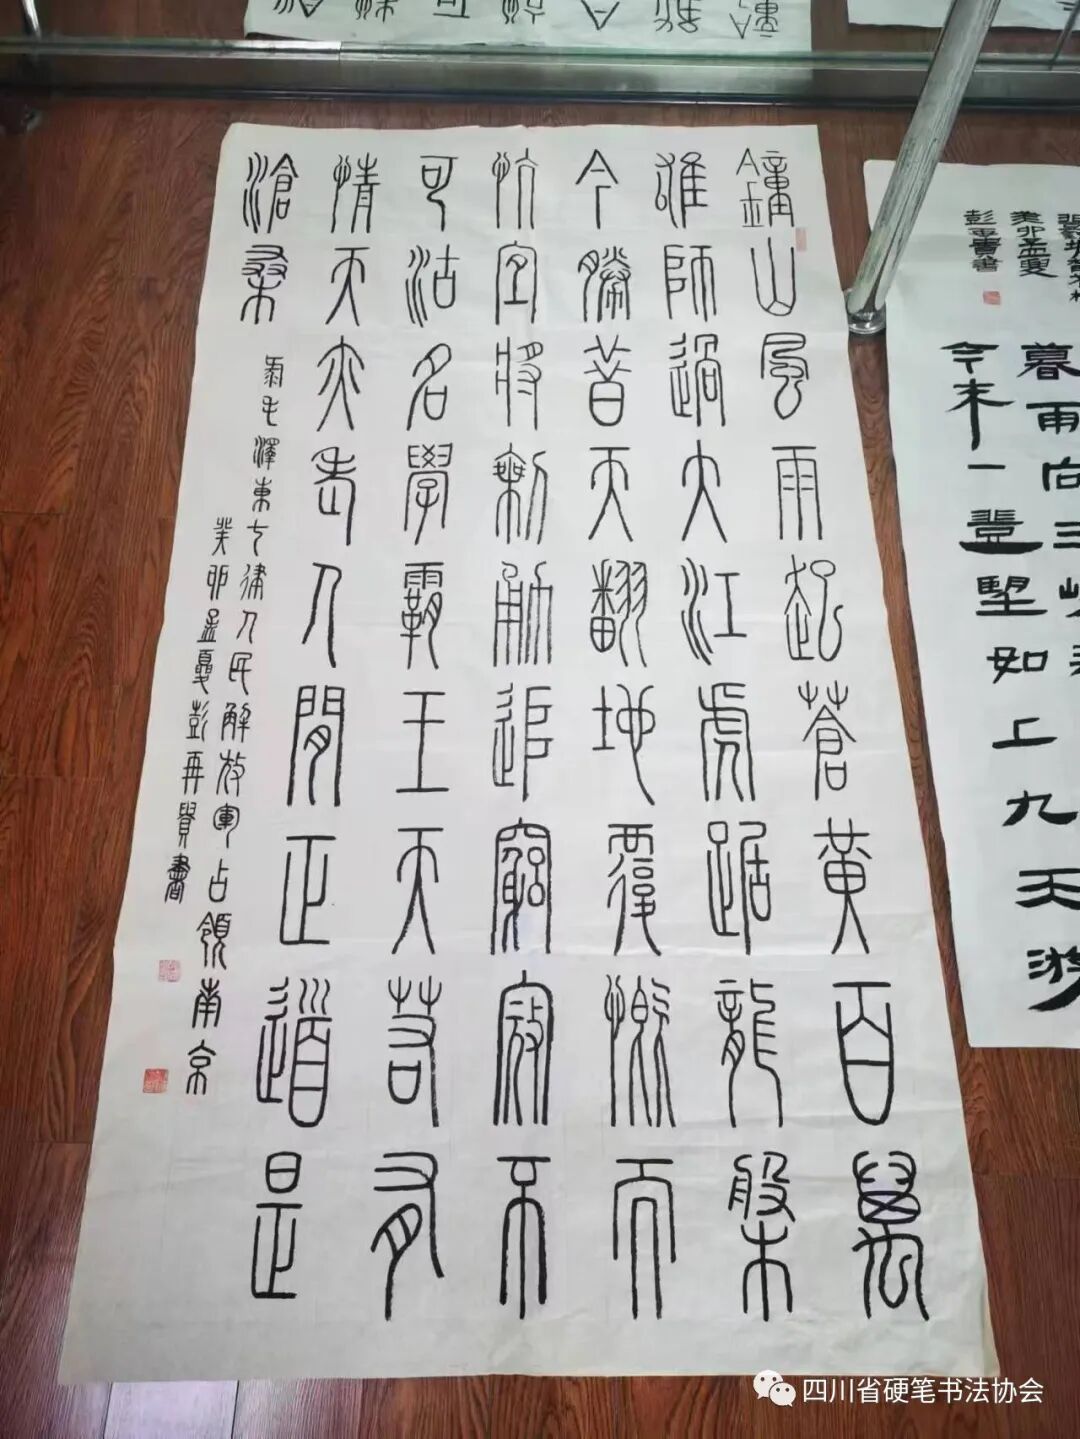 鐘山風雨起蒼黃百萬
雄師過大江虎踞龍槃
今勝昔天翻地覆慨而
忼宜將剩勇追窮寇不
可沽名學霸王天若有
情天亦老人間正道是
滄桑
录毛澤東七律人民解放軍占領南京
癸卯孟夏彭再賢書
暮雨向三峽春
今來一登望如上九天游
癸卯孟夏
彭再賢書
四川省硬笔书法协会